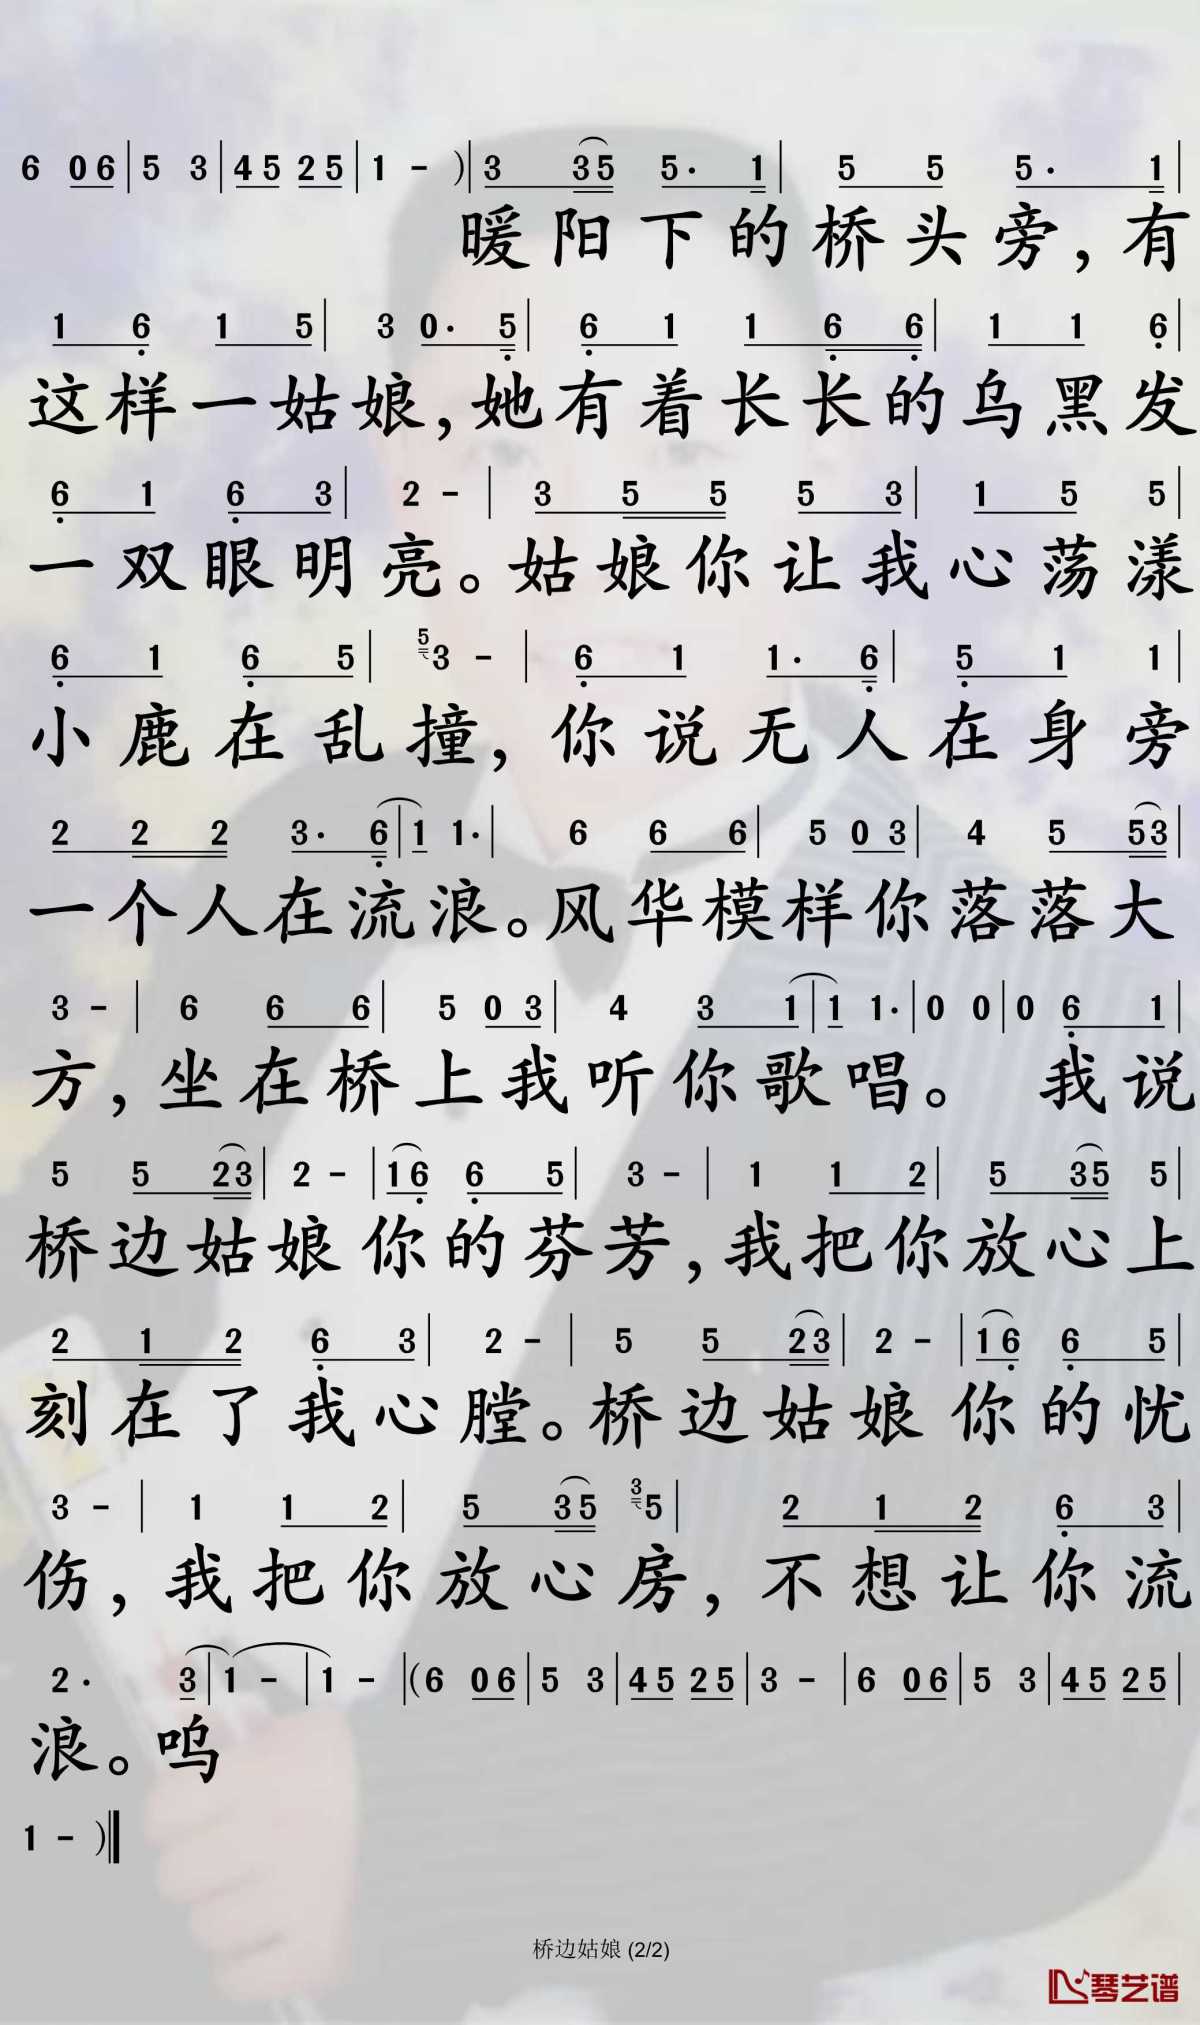 6 06 | 5 3 | 45 25 | 1 - ) | 3 35 5· 1 | 5 5 5· 1 |
暖阳下的桥头旁，有
1 6 1 5 | 3 0· 5 | 6 1 1 6 6 | 1 1 6 |
这样一姑娘，她有着长长的乌黑发
6 1 6 3 | 2 - | 3 5 5 5 3 | 1 5 5 |
一双眼明亮。姑娘你让我心荡漾
6 1 6 5 | 5 3 - | 6 1 1· 6 | 5 1 1 |
小鹿在乱撞，你说无人在身旁
2 2 2 3· 6 | 1 1· | 6 6 6 | 5 03 | 4 5 53 |
一个人在流浪。风华模样你落落大
3 - | 6 6 6 | 5 03 | 4 3 1 | 1 1· | 0 0 | 0 6 1 |
方，坐在桥上我听你歌唱。 我说
5 5 23 | 2 - | 16 6 5 | 3 - | 1 1 2 | 5 35 5 |
桥边姑娘你的芬芳，我把你放心上
2 1 2 6 3 | 2 - | 5 5 23 | 2 - | 16 6 5 |
刻在了我心膛。桥边姑娘你的忧
3 - | 1 1 2 | 5 35 3 5 | 2 1 2 6 3 |
伤，我把你放心房，不想让你流
2· 3 | 1 - | 1 - | (6 06 | 5 3 | 45 25 | 3 - | 6 06 | 5 3 | 45 25 |
浪。呜
1 - )
桥边姑娘 (2/2)
琴艺谱